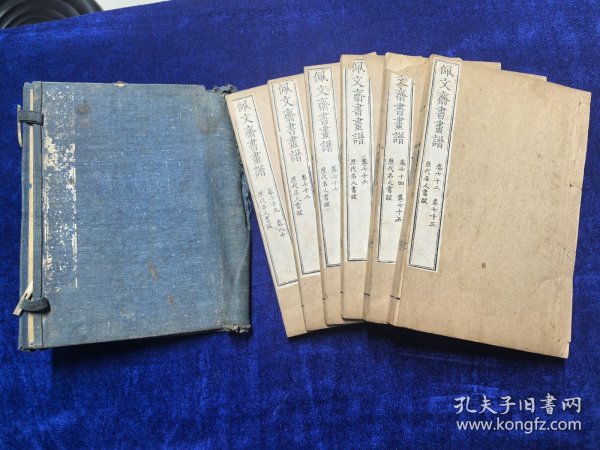 佩文齋書畫譜
卷七十九 卷八十
歷代名人書跋
佩文齋書畫譜
卷七十八
歷代名人書跋
佩文齋書畫譜
卷七十七
歷代名人書跋
佩文齋書畫譜
卷七十六
歷代名人書跋
文齋書畫譜
卷七十四 卷七十五
歷代名人書跋
佩文齋書畫譜
卷七十二 卷七十三
歷代名人書跋
孔夫子旧书网
www.kongfz.com